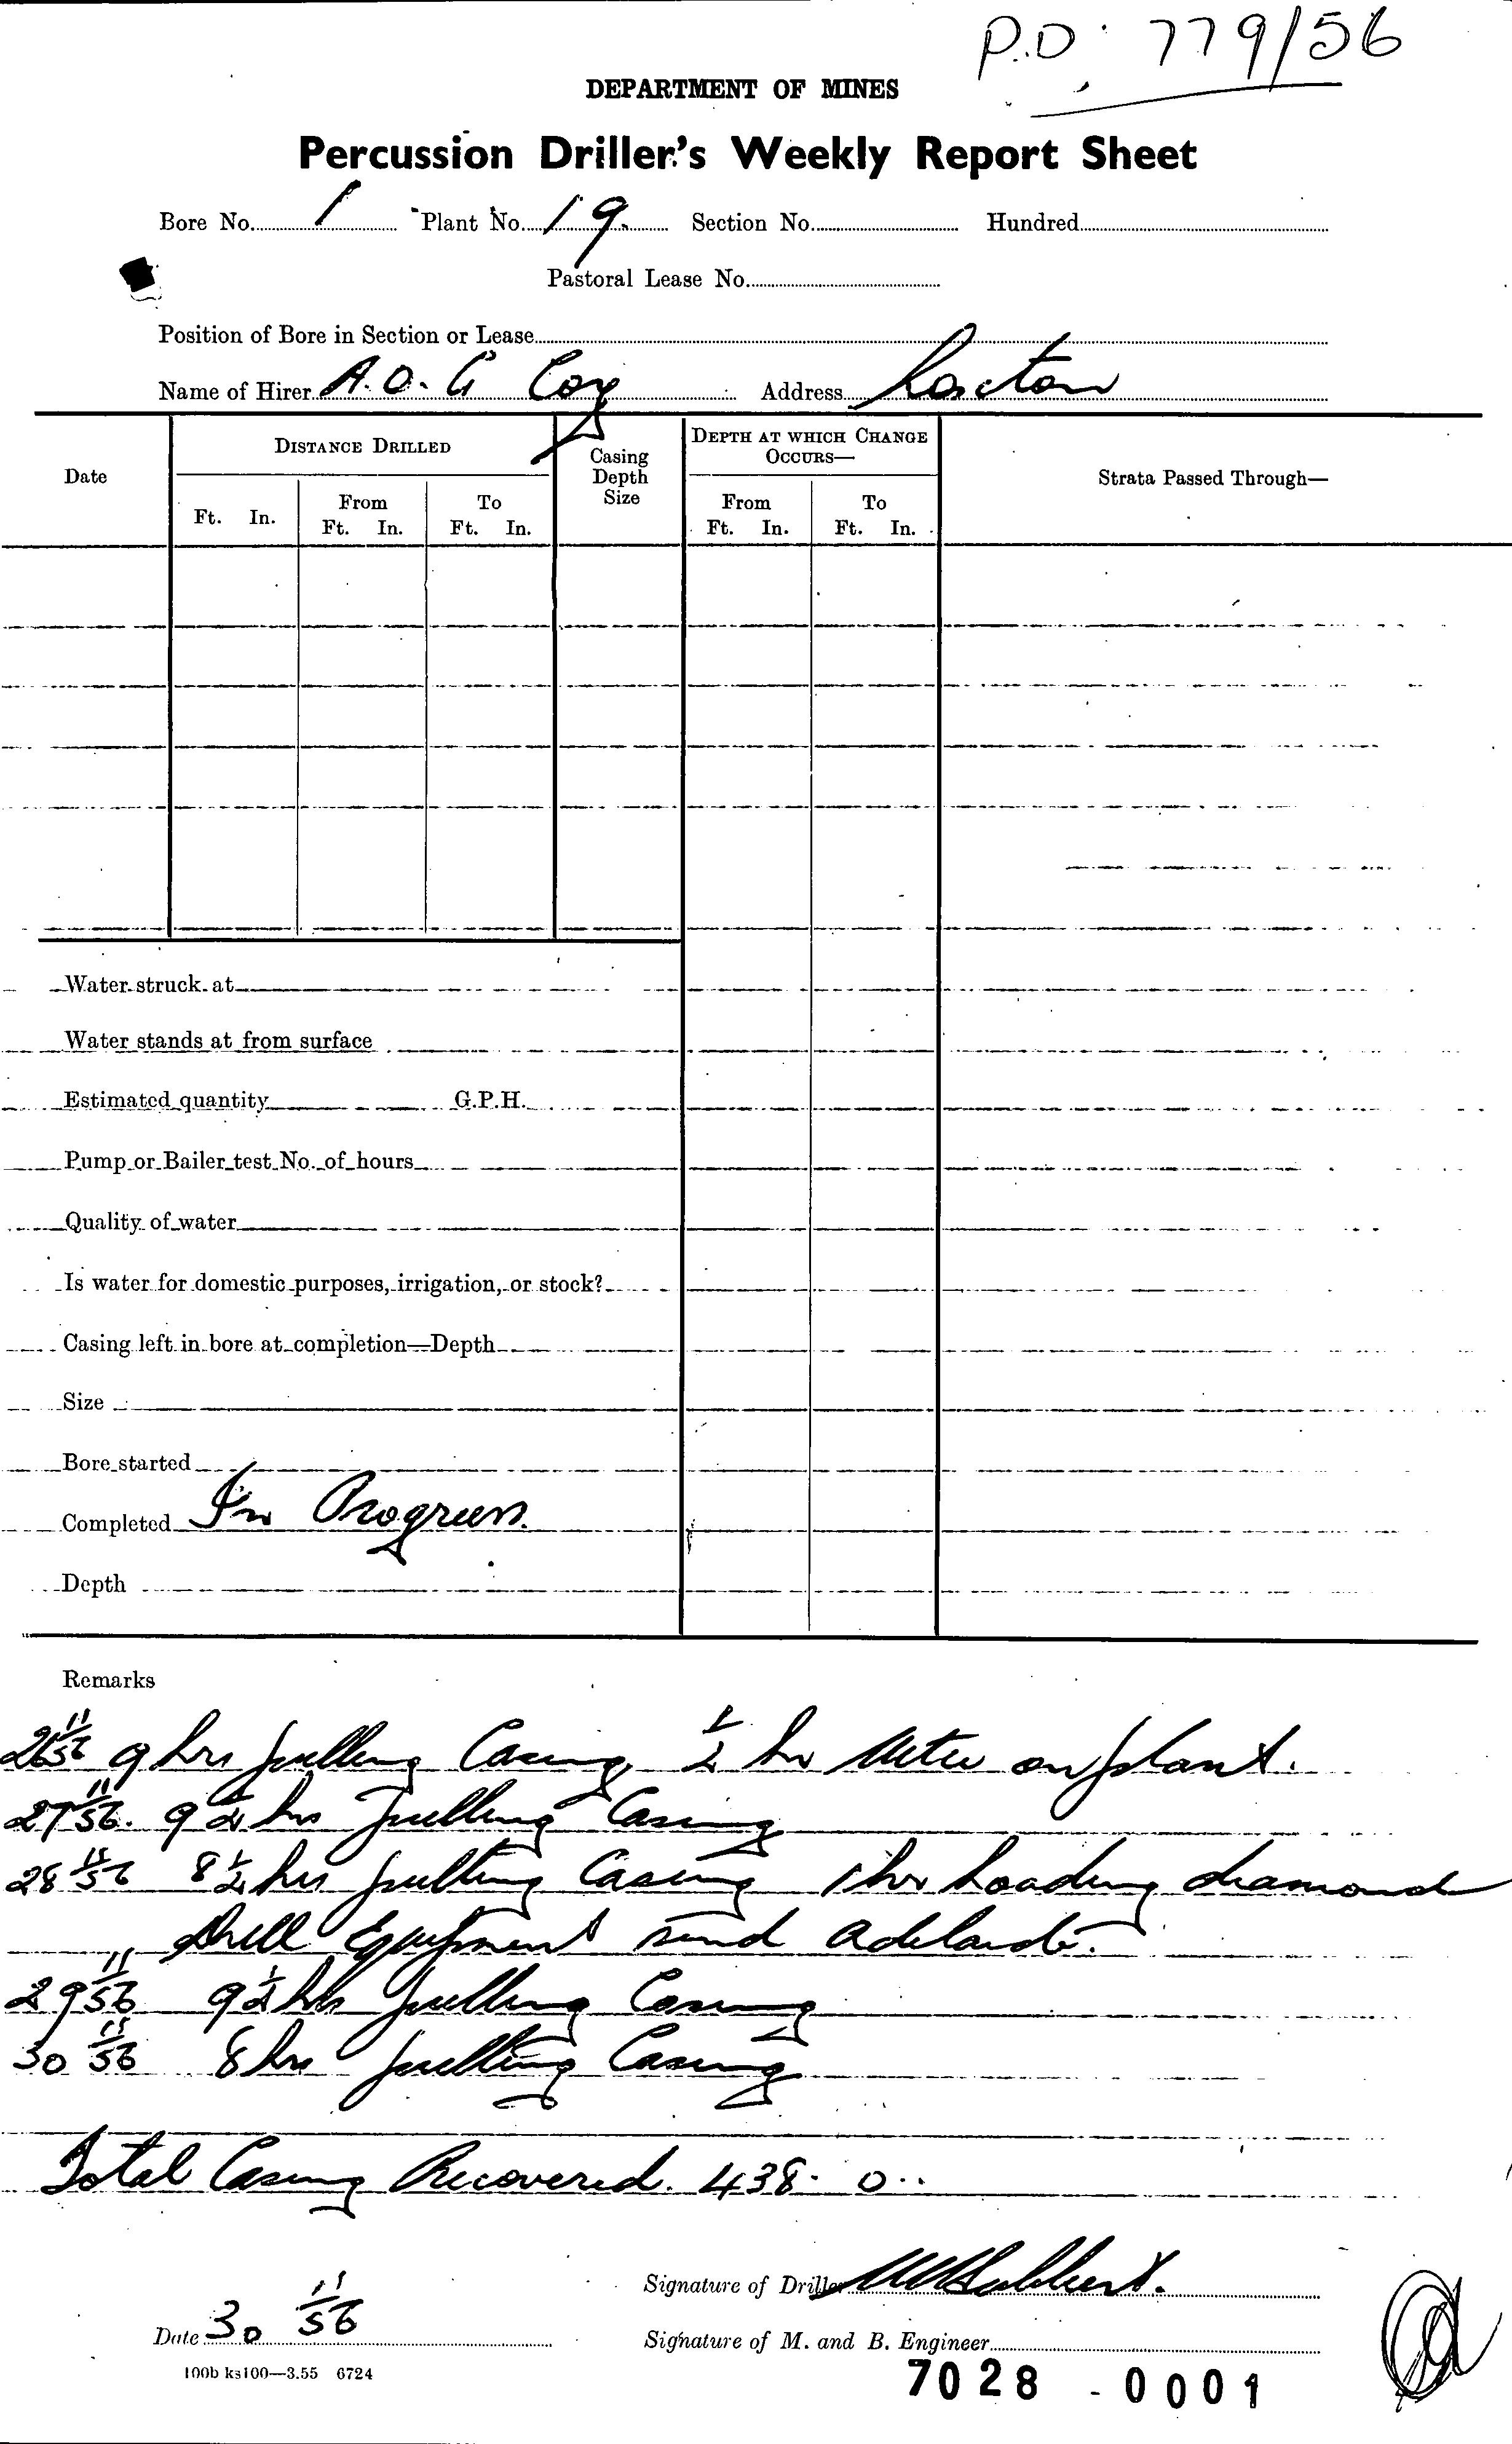 P.D. 779/56
DEPARTMENT OF MINES
Percussion Driller's Weekly Report Sheet
Bore No. 1 Plant No. 19. Section No. Hundred
Pastoral Lease No.
Position of Bore in Section or Lease
Name of Hirer A.O.G Coy Address Loxton
Date
DISTANCE DRILLED
Ft. In.
From
Ft. In.
To
Ft. In.
Casing
Depth
Size
DEPTH AT WHICH CHANGE
OCCURS—
From
Ft. In.
To
Ft. In.
Strata Passed Through—
Water struck at
Water stands at from surface
Estimated quantity G.P.H.
Pump or Bailer test No. of hours
Quality of water
Is water for domestic purposes, irrigation, or stock?
Casing left in bore at completion—Depth
Size
Bore started
Completed In Progress.
Depth
Remarks
26 11/56 9 hrs pulling Casing 1/2 hr on plant.
27 11/56. 9 1/2 hrs pulling Casing
28 11/56 8 1/2 hrs pulling Casing 1 hr Loading diamond
drill Equipment send Adelaide.
29 11/56 9 1/2 hrs pulling Casing
30 11/56 8 hrs pulling Casing
Total Casing Recovered. 438 - 0
Signature of Driller
Date 30 11/56
Signature of M. and B. Engineer
100b ks100—3.55 6724
7028 - 0001